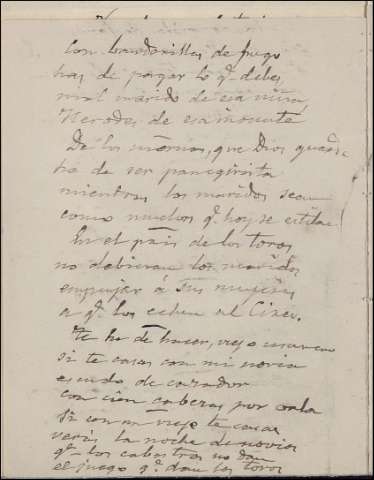 Con banderillas de fuego
has de pagar lo q. debes
mal marido de esa niña,
Herodes de esa inocente
De los que Dios
ha de ser panegirista
mientras los maridos sean
como muchos q. hoy se estilan!
En el país de los toros
no debieran los maridos
empujar a sus mujeres
a q. los echen al Circo.
Te he de hacer, viejo
si te casas con mi novia
escudo de cazador
con cien cabezas por orla
Si con un viejo te casas
verás la noche de novios
q. los cabestros no dan
el juego q. dan los toros